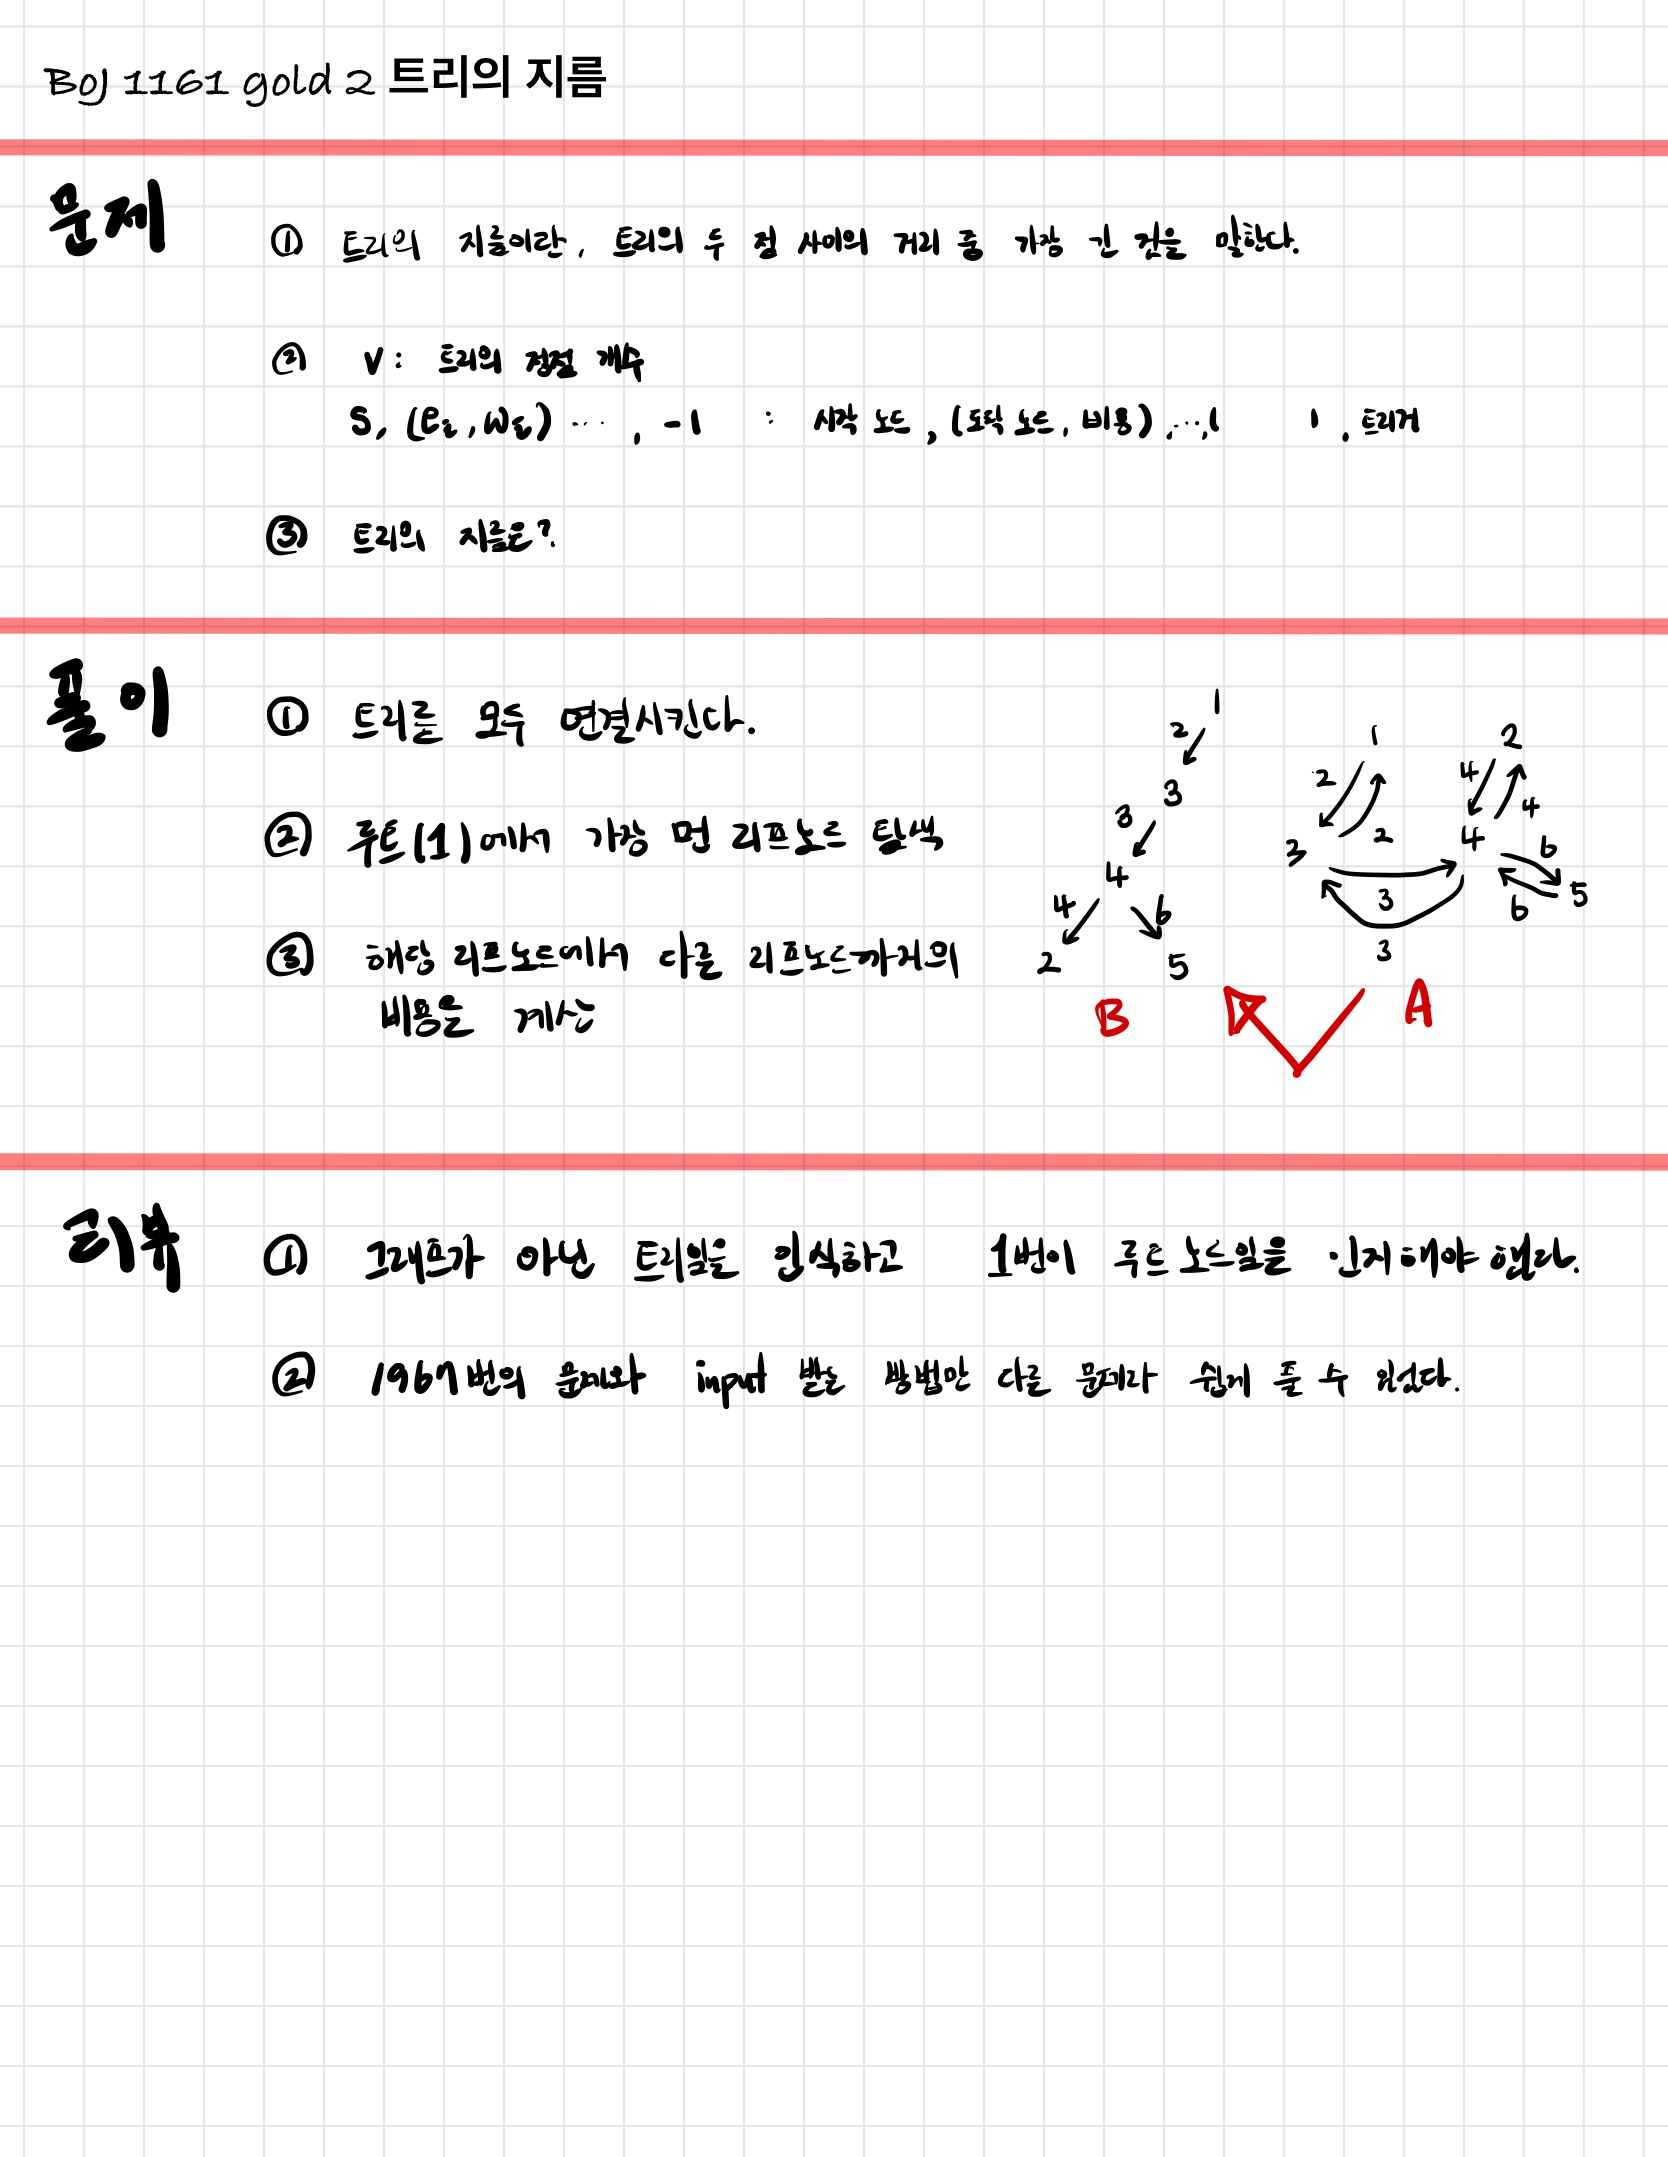 BOJ 1161 gold 2 트리의 지름
문제
① 트리의 지름이란, 트리의 두 점 사이의 거리 중 가장 긴 것을 말한다.
② V: 트리의 정점 개수
S, (Ei, Wi) ..., -1 : 시작 노드, (도착 노드, 비용) ..., 트리거
③ 트리의 지름은?
풀이
① 트리를 모두 연결시킨다.
② 루트(1)에서 가장 먼 리프노드 탐색
③ 해당 리프노드에서 다른 리프노드까지의
비용을 계산
1
2
3
3
4
4 6
2 5
B
1 2
2 4 4
3 2 4 6
3 6 5
3
A
리뷰
① 그래프가 아닌 트리임을 인식하고 1번이 루트 노드임을 인지해야 했다.
② 1967번의 문제와 input 받는 방법만 다른 문제라 쉽게 풀 수 있었다.